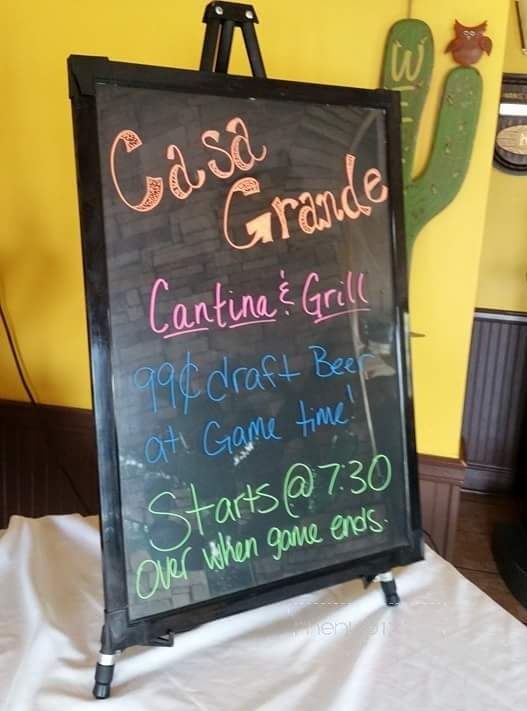 Casa
Grande
Cantina & Grill
99¢ draft Beer
at Game time!
Starts @ 7:30
Over when game ends.